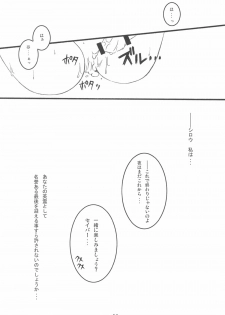 は…っ
はっ…
はー…♥
ズル…
ポタ
ポタ
―――シロウ 私は…
―――これで終わりじゃないのよ
まだまだこれから…
一緒に楽しみましょう
セイバー…
クス
クス
あなたの英霊として
名誉ある最後を迎える事すら許されないのでしょうか…